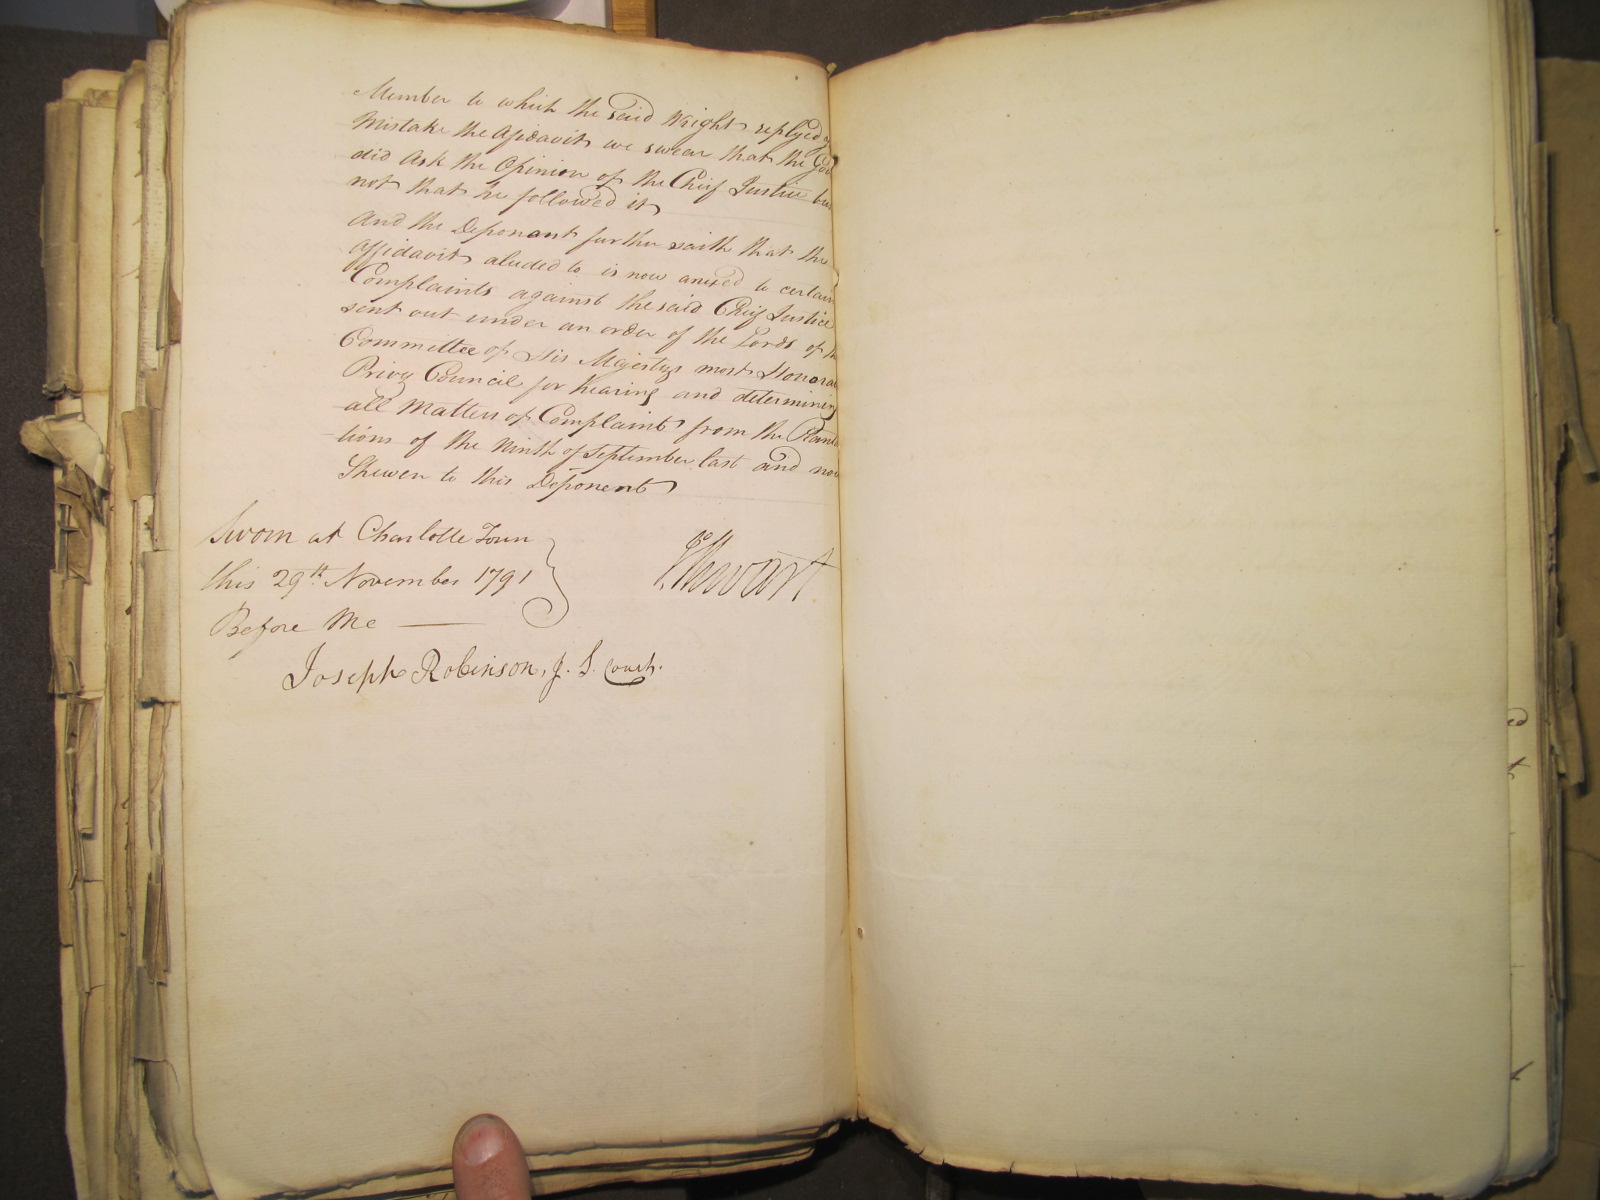 Member to which the said Wright replyed
Mistake the Afidavit, we swear that the Gov
did Ask the Opinion of the Chief Justice but
not that he followed it
And the Deponant further saith that the
Affidavit aluded to is now anexed to certain
Complaints against the said Chief Justice
sent out under an order of the Lords of th
Committee of His Majestys most Honora
Privy Council for hearing and determining
all Matters of Complaint from the Planta
tions of the Ninth of September last and now
Shewen to this Deponent
Sworn at Charlotte Town
this 29th November 1791
Before Me
Stewart
Joseph Robinson, J. S. Court.